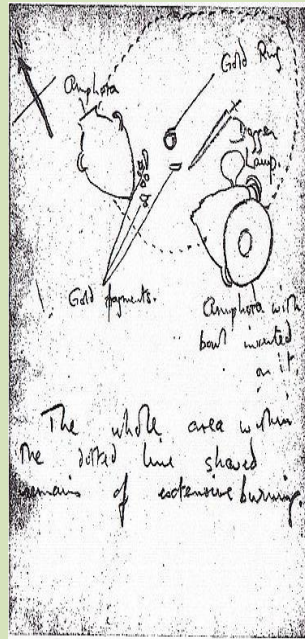 N
Gold Ring
Amphora
Dagger
Lamp.
Gold fragments.
Amphora with
bowl inverted
on it.
The whole area within
the dotted line showed
remains of extensive burning.